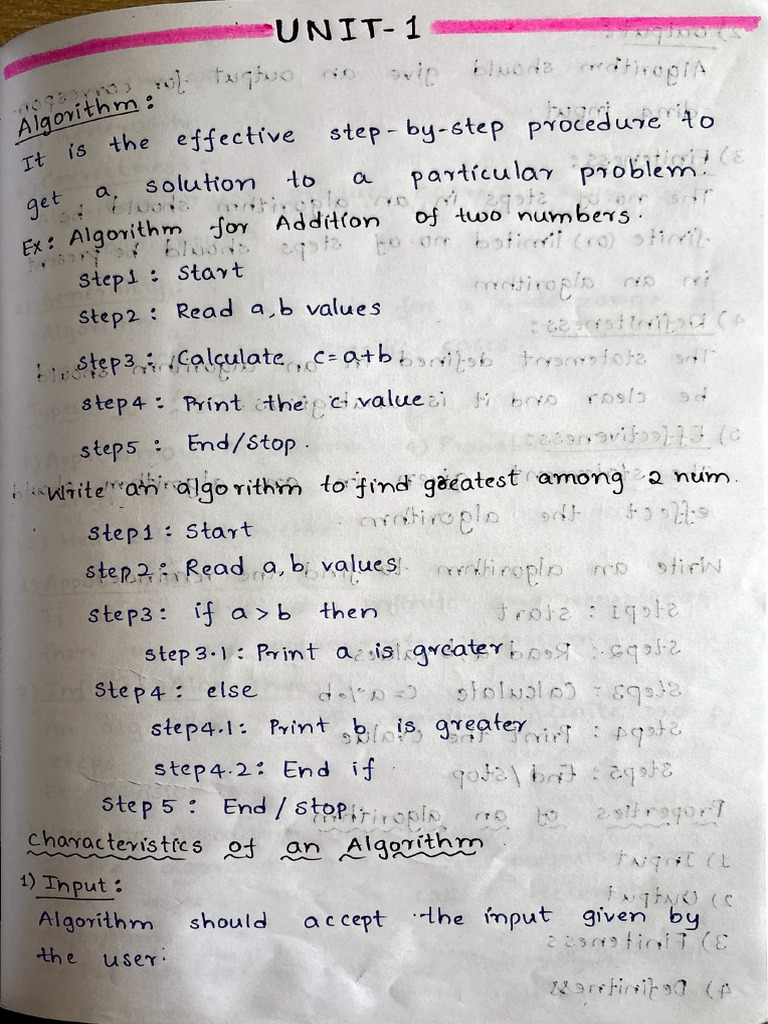 UNIT-1
Algorithm:
It is the effective step-by-step procedure to
get a solution to a particular problem.
Ex: Algorithm for Addition of two numbers.
Step1: Start
Step2: Read a,b values
Step3: Calculate c=a+b
Step4: Print the c value
Step5: End/Stop.
Write an algorithm to find greatest among 2 num.
Step1: Start
Step2: Read a,b values
Step3: if a>b then
Step3.1: Print a is greater
Step4: else
Step4.1: Print b is greater
Step4.2: End if
Step5: End/Stop
Characteristics of an Algorithm
1) Input:
Algorithm should accept the input given by
the user.